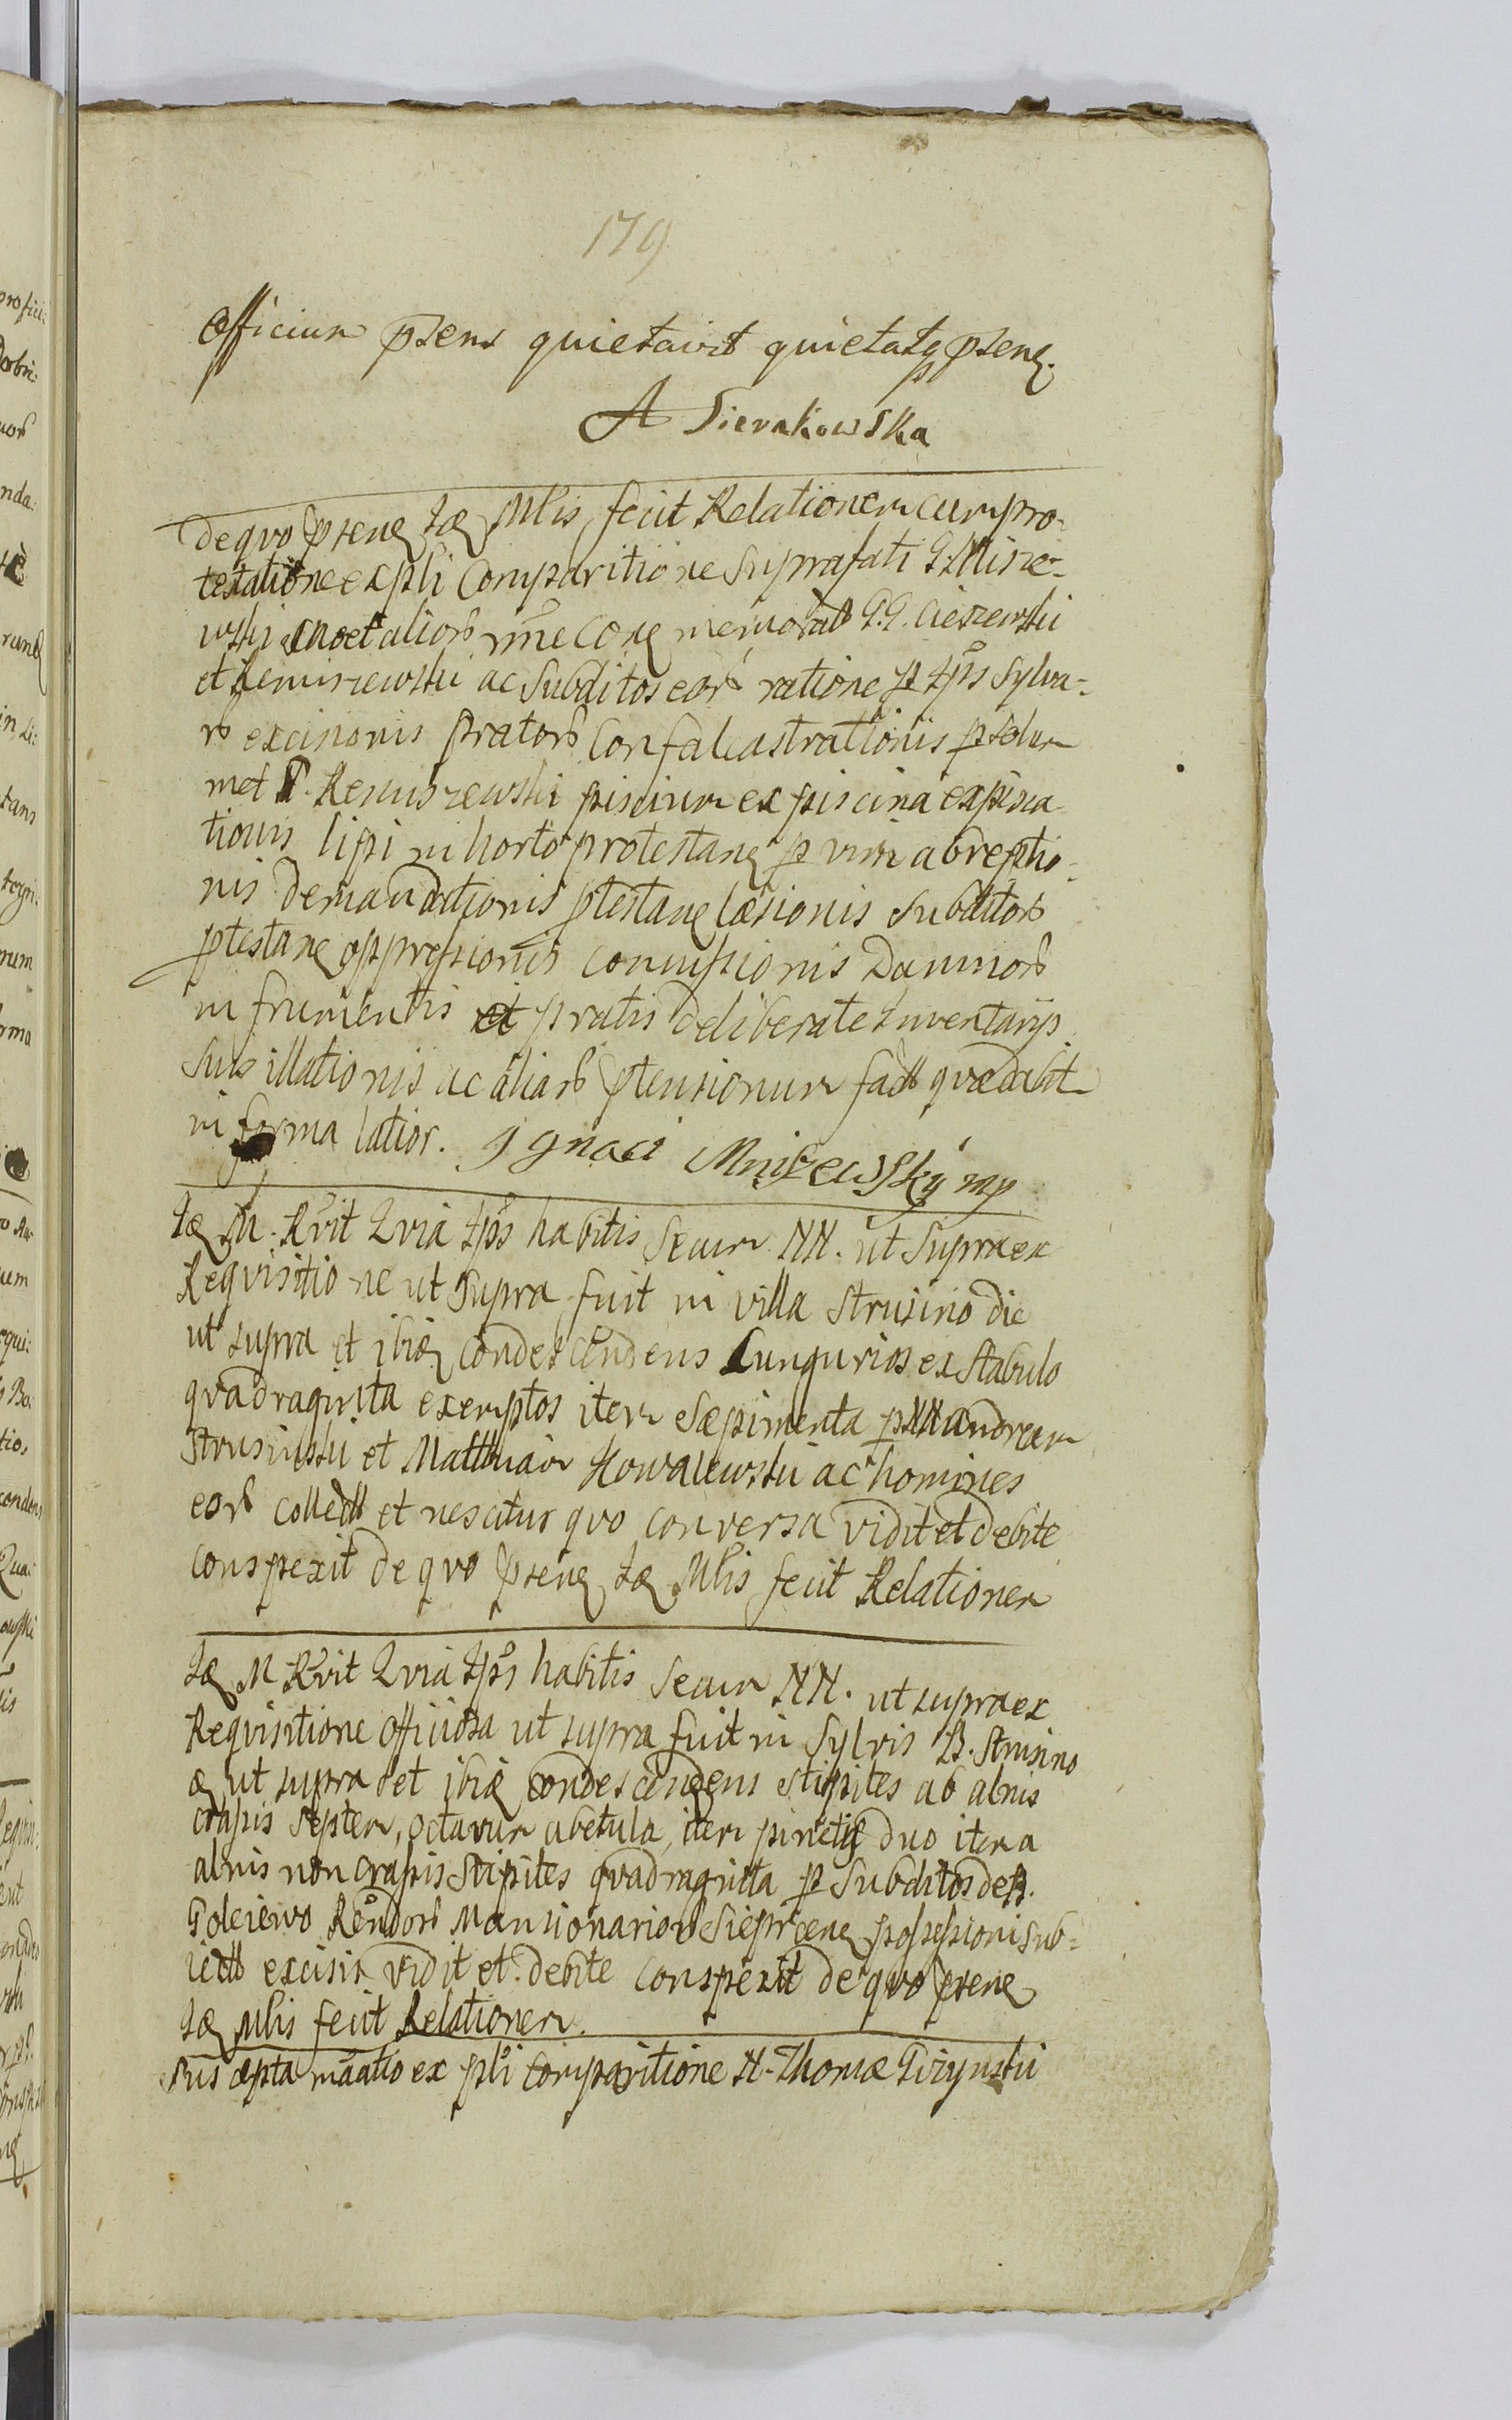 179
Officium psens quietavit quietatq psenq.
A Sierakowska
de quo psenq Idq Mlis fecit Relationem cum pro-
testatione ex psli Comparitione Suprafati G. Misze-
wski noe et alior nne Conq memorat G.G. Cieszewski
et Remiszewski ac Subditos eor ratione p Ips Sylva-
r excisionis Prator Confalcastrationis p solum
met G. Remiszewski piscium ex piscina expisca
tionis lipi in horto protestanq p vim abreptio-
nis demandationis ptestanq læsionis Subditor
ptestanq oppressionis commissionis Damnor
in frumentis et pratis deliberate Inventarijs
Suis illationis ac aliar ptensionum fact quæ dabit
in forma latior. Ignaci Mniszewsky mp
Idq M. Rvit Qvia Ips habitis Secum NN. ut Supra ex
Requisitione ut Supra fuit in villa Strusino die
ut supra et ibiq condescendens Cungurios ex Stabulo
quadraginta exemptos item Sæpimenta p NN andream
Strusinski et Matthiam Kowalewski ac homines
eor collect et nescitur quo conversa vidit et debite
conspexit de quo psenq Idq Mlis fecit Relationem
Idq M Rvit Qvia Ips habitis Secum NN. ut supra ex
Requisitione officiosa ut supra fuit in Sylvis B. Strusino
q ut supra et ibiq condescendens stipites ab alnis
crassis Septem, octavum a betula, item pineti duo item a
alnis non crassis Stipites quadraginta p Subditos de B.
Golejewo Rendor Mansionarior Sieprcenq possessioni sub-
iect excisis vidit et debite conspexit de quo psenq
Idq Mlis fecit Relationem.
Suscepta maatio ex psli Comparitione N. Thomæ Gizynski